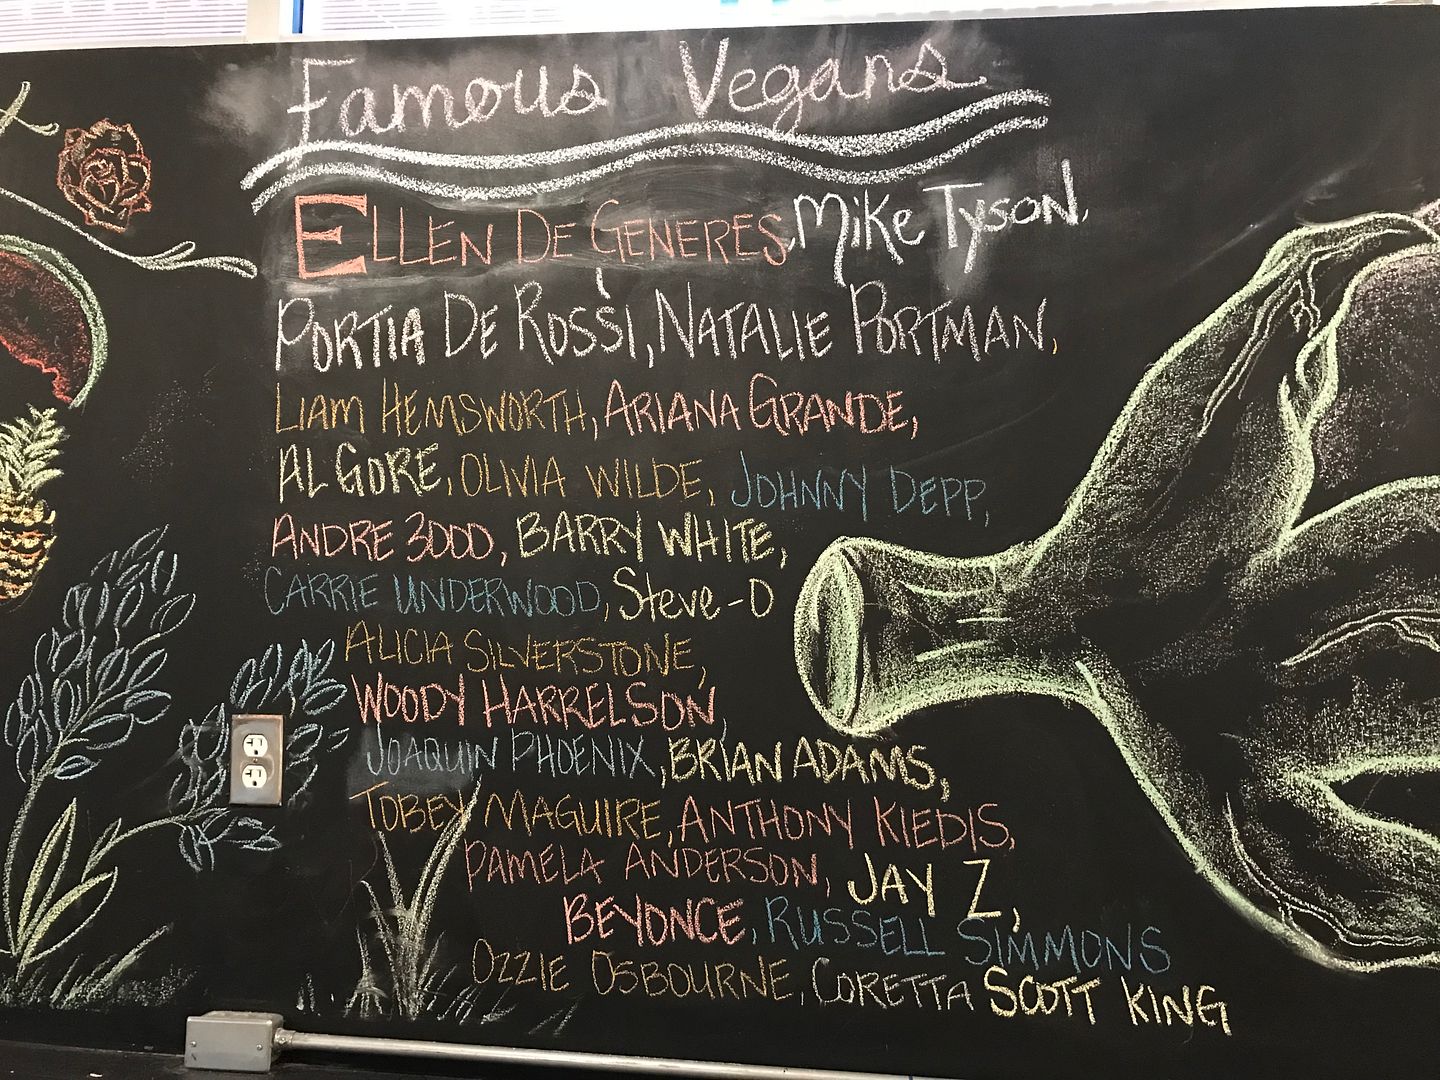 Famous Vegans
ELLEN DE GENERES, Mike Tyson,
PORTIA DE ROSSI, NATALIE PORTMAN,
LIAM HEMSWORTH, ARIANA GRANDE,
AL GORE, OLIVIA WILDE, JOHNNY DEPP,
ANDRE 3000, BARRY WHITE,
CARRIE UNDERWOOD, Steve-O
ALICIA SILVERSTONE,
WOODY HARRELSON,
JOAQUIN PHOENIX, BRIAN ADAMS,
TOBEY MAGUIRE, ANTHONY KIEDIS,
PAMELA ANDERSON, JAY Z,
BEYONCE, RUSSELL SIMMONS
OZZIE OSBOURNE, CORETTA SCOTT KING